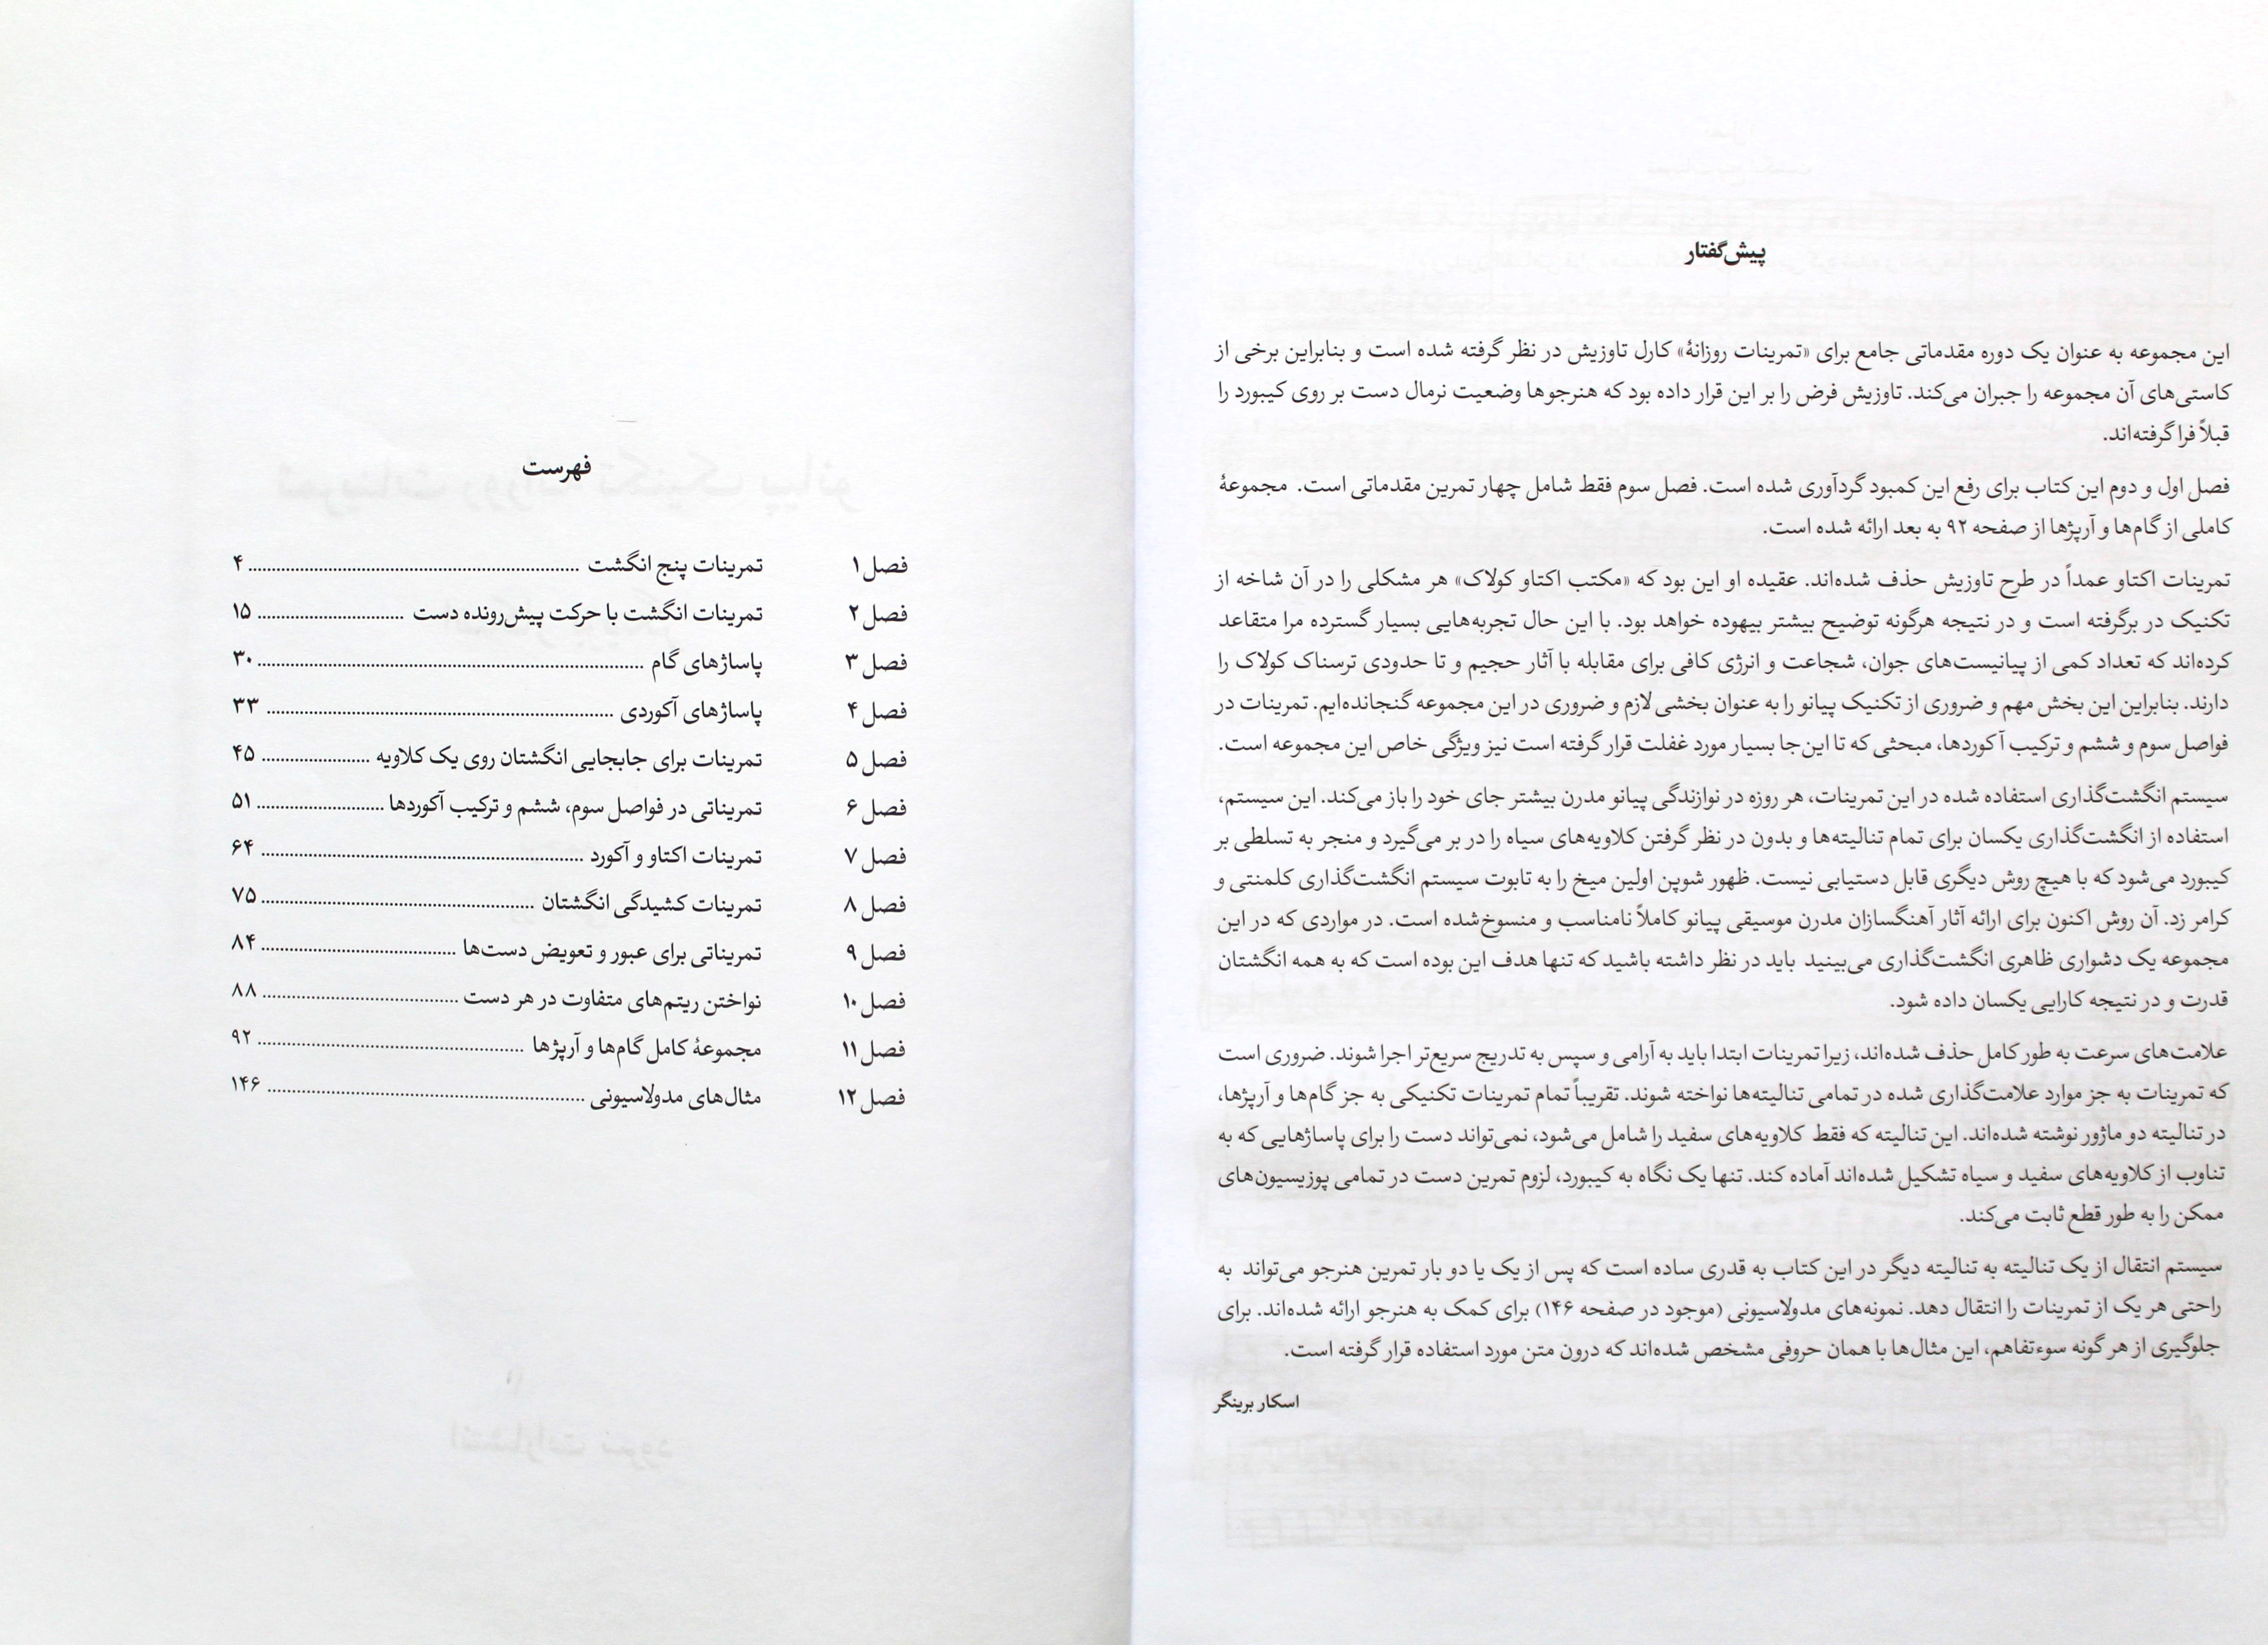 فهرست
فصل ۱ تمرینات پنج انگشت ۴
فصل ۲ تمرینات انگشت با حرکت پیش‌رونده دست ۱۵
فصل ۳ پاساژهای گام ۳۰
فصل ۴ پاساژهای آکوردی ۳۳
فصل ۵ تمرینات برای جابجایی انگشتان روی یک کلاویه ۴۵
فصل ۶ تمریناتی در فواصل سوم، ششم و ترکیب آکوردها ۵۱
فصل ۷ تمرینات اکتاو و آکورد ۶۴
فصل ۸ تمرینات کشیدگی انگشتان ۷۵
فصل ۹ تمریناتی برای عبور و تعویض دست‌ها ۸۴
فصل ۱۰ نواختن ریتم‌های متفاوت در هر دست ۸۸
فصل ۱۱ مجموعهٔ کامل گام‌ها و آرپژها ۹۲
فصل ۱۲ مثال‌های مدولاسیونی ۱۴۶
پیش‌گفتار
این مجموعه به عنوان یک دوره مقدماتی جامع برای «تمرینات روزانهٔ» کارل تاوزیش در نظر گرفته شده است و بنابراین برخی از
کاستی‌های آن مجموعه را جبران می‌کند. تاوزیش فرض را بر این قرار داده بود که هنرجوها وضعیت نرمال دست بر روی کیبورد را
قبلاً فرا گرفته‌اند.
فصل اول و دوم این کتاب برای رفع این کمبود گردآوری شده است. فصل سوم فقط شامل چهار تمرین مقدماتی است. مجموعهٔ
کاملی از گام‌ها و آرپژها از صفحه ۹۲ به بعد ارائه شده است.
تمرینات اکتاو عمداً در طرح تاوزیش حذف شده‌اند. عقیده او این بود که «مکتب اکتاو کولاک» هر مشکلی را در آن شاخه از
تکنیک در برگرفته است و در نتیجه هرگونه توضیح بیشتر بیهوده خواهد بود. با این حال تجربه‌هایی بسیار گسترده مرا متقاعد
کرده‌اند که تعداد کمی از پیانیست‌های جوان، شجاعت و انرژی کافی برای مقابله با آثار حجیم و تا حدودی ترسناک کولاک را
دارند. بنابراین این بخش مهم و ضروری از تکنیک پیانو را به عنوان بخشی لازم و ضروری در این مجموعه گنجانده‌ایم. تمرینات در
فواصل سوم و ششم و ترکیب آکوردها، مبحثی که تا این‌جا بسیار مورد غفلت قرار گرفته است نیز ویژگی خاص این مجموعه است.
سیستم انگشت‌گذاری استفاده شده در این تمرینات، هر روزه در نوازندگی پیانو مدرن بیشتر جای خود را باز می‌کند. این سیستم،
استفاده از انگشت‌گذاری یکسان برای تمام تنالیته‌ها و بدون در نظر گرفتن کلاویه‌های سیاه را در بر می‌گیرد و منجر به تسلطی بر
کیبورد می‌شود که با هیچ روش دیگری قابل دستیابی نیست. ظهور شوپن اولین میخ را به تابوت سیستم انگشت‌گذاری کلمنتی و
کرامر زد. آن روش اکنون برای ارائه آثار آهنگسازان مدرن موسیقی پیانو کاملاً نامناسب و منسوخ‌شده است. در مواردی که در این
مجموعه یک دشواری ظاهری انگشت‌گذاری می‌بینید باید در نظر داشته باشید که تنها هدف این بوده است که به همه انگشتان
قدرت و در نتیجه کارایی یکسان داده شود.
علامت‌های سرعت به طور کامل حذف شده‌اند، زیرا تمرینات ابتدا باید به آرامی و سپس به تدریج سریع‌تر اجرا شوند. ضروری است
که تمرینات به جز موارد علامت‌گذاری شده در تمامی تنالیته‌ها نواخته شوند. تقریباً تمام تمرینات تکنیکی به جز گام‌ها و آرپژها،
در تنالیته دو ماژور نوشته شده‌اند. این تنالیته که فقط کلاویه‌های سفید را شامل می‌شود، نمی‌تواند دست را برای پاساژهایی که به
تناوب از کلاویه‌های سفید و سیاه تشکیل شده‌اند آماده کند. تنها یک نگاه به کیبورد، لزوم تمرین دست در تمامی پوزیسیون‌های
ممکن را به طور قطع ثابت می‌کند.
سیستم انتقال از یک تنالیته به تنالیته دیگر در این کتاب به قدری ساده است که پس از یک یا دو بار تمرین هنرجو می‌تواند به
راحتی هر یک از تمرینات را انتقال دهد. نمونه‌های مدولاسیونی (موجود در صفحه ۱۴۶) برای کمک به هنرجو ارائه شده‌اند. برای
جلوگیری از هر گونه سوءتفاهم، این مثال‌ها با همان حروفی مشخص شده‌اند که درون متن مورد استفاده قرار گرفته است.
اسکار برینگر